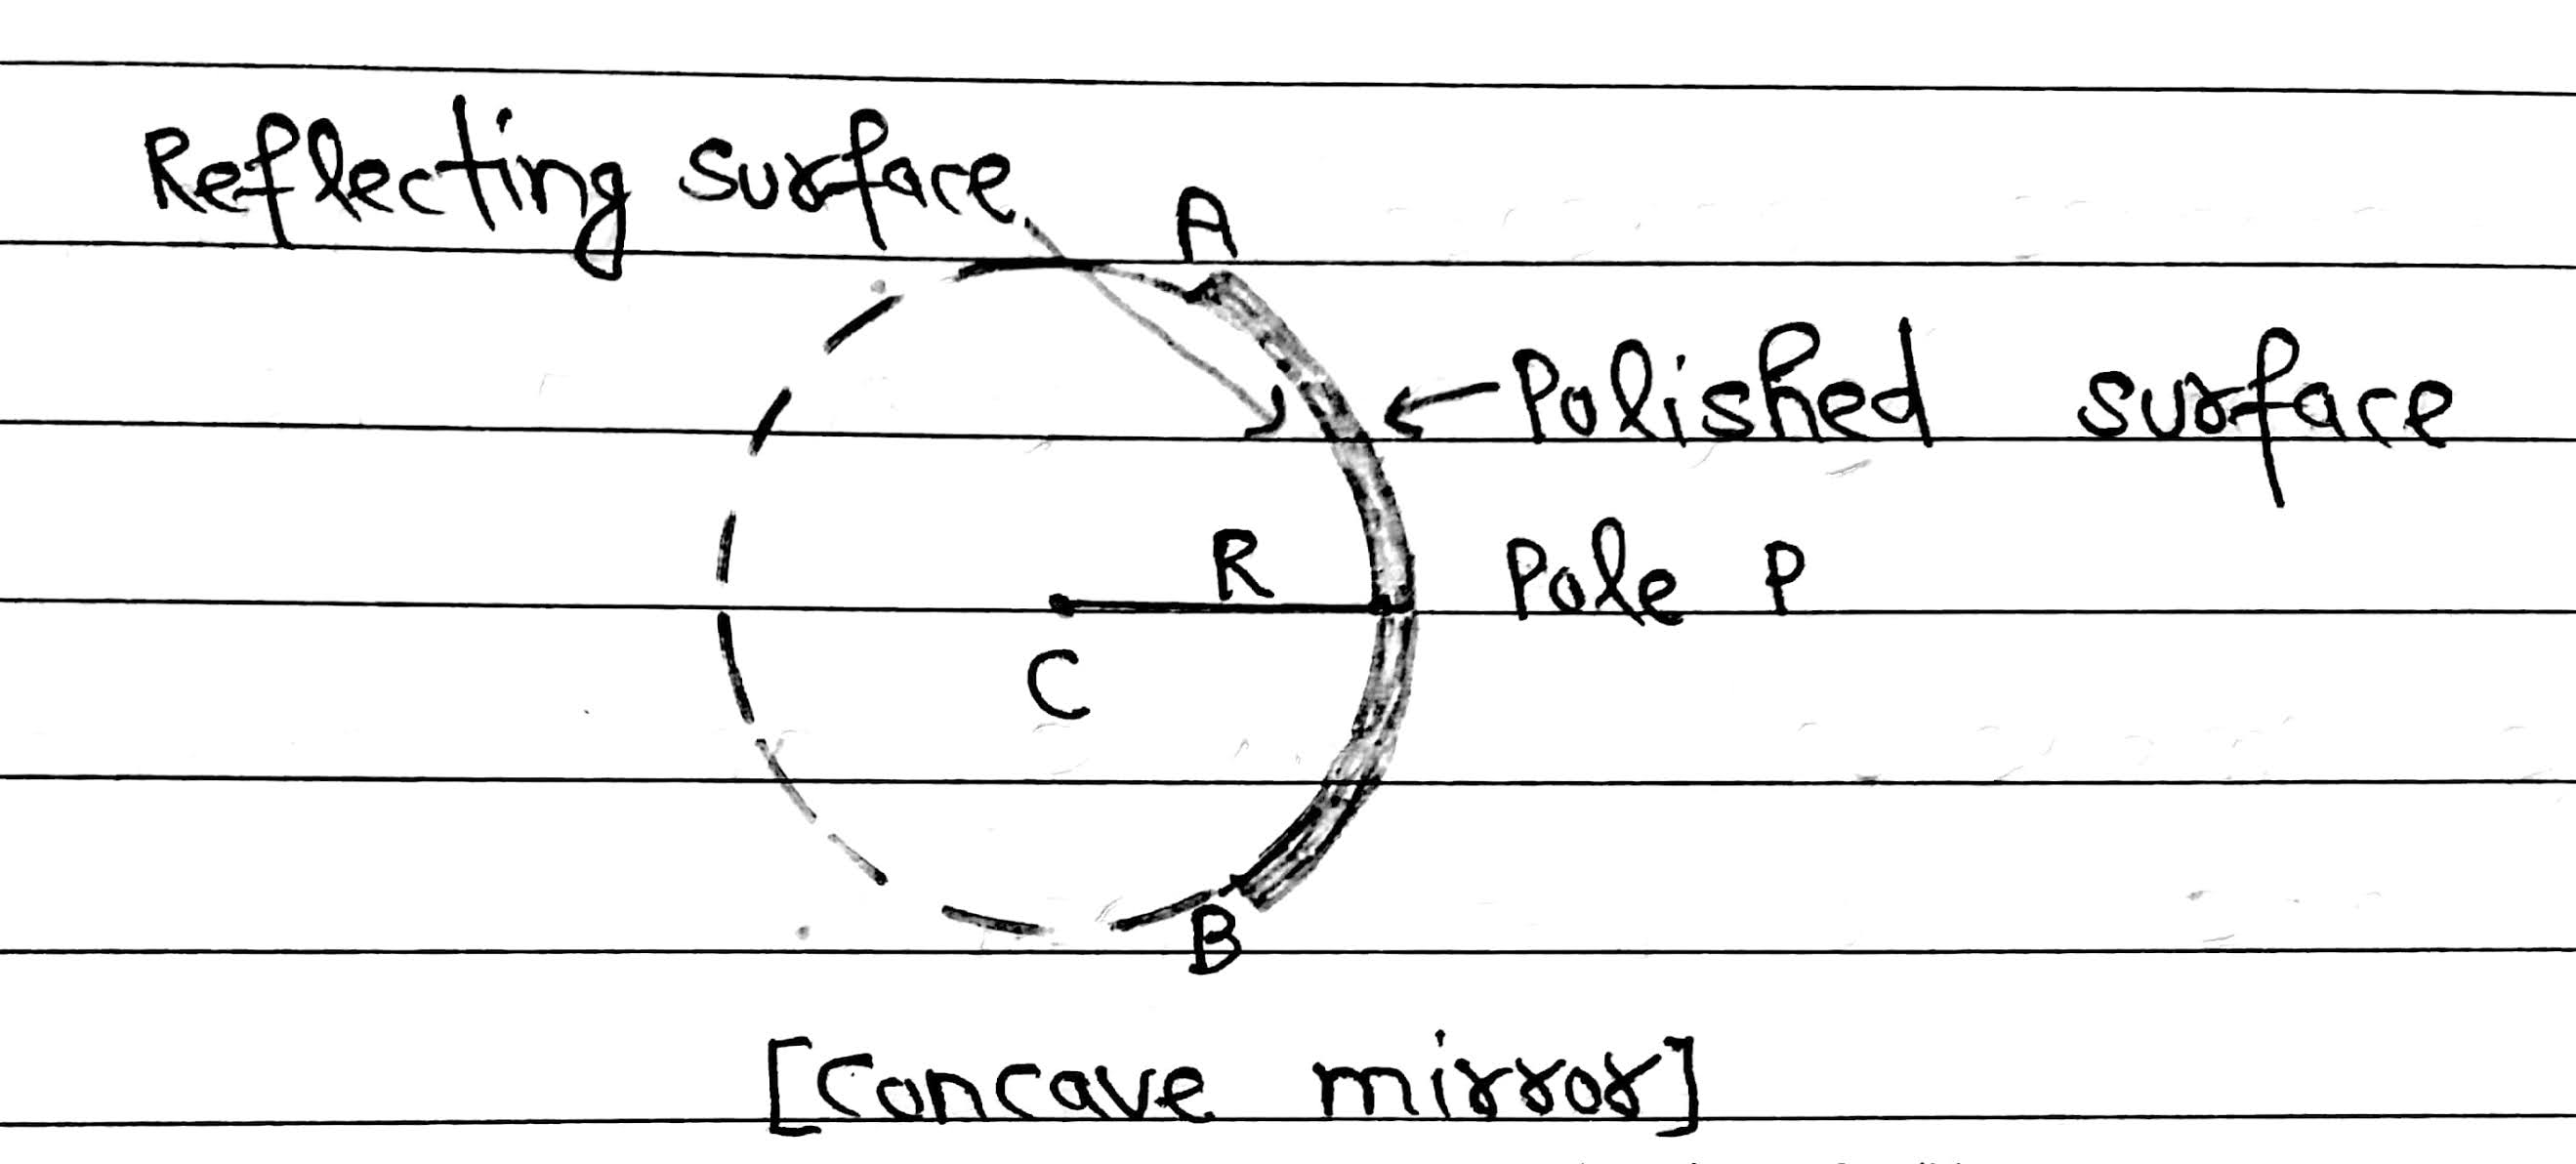 Reflecting surface
A
Polished surface
R
Pole P
C
B
[Concave mirror]